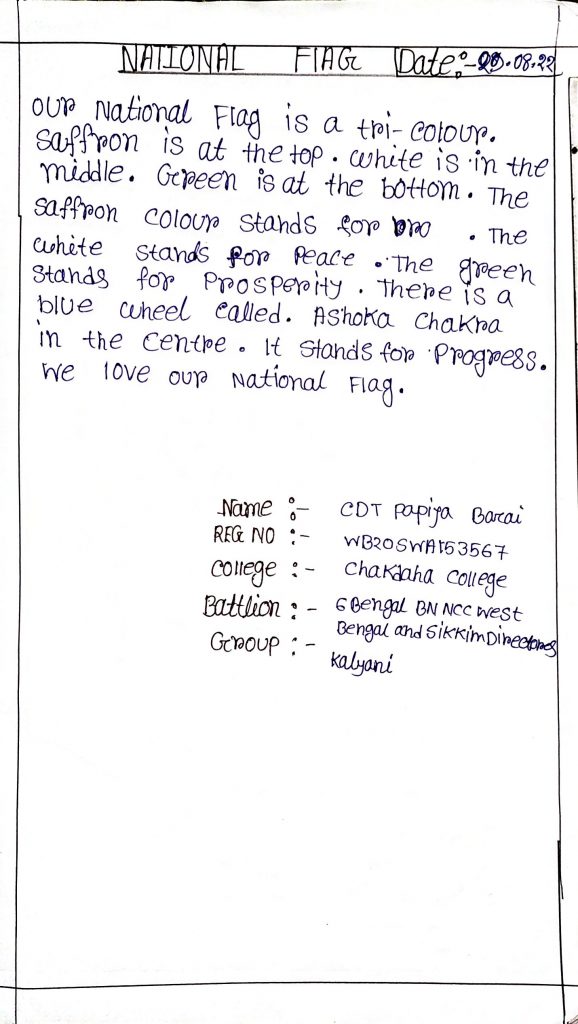 NATIONAL FlAG Date:-20.08.22
our National Flag is a tri-colour.
Saffron is at the top. white is in the
middle. Green is at the bottom. The
saffron colour stands for bro . The
white stands for Peace. The green
stands for Prosperity. There is a
blue wheel called. AShoka chakra
in the centre. It stands for Progress.
We love our National Flag.
Name :- CDT Papiya Barai
REG NO :- WB20SWA153567
college :- Chakdaha college
Battlion :- 6 Bengal BN NCC West
Bengal and Sikkim Directores
Group :- kalyani